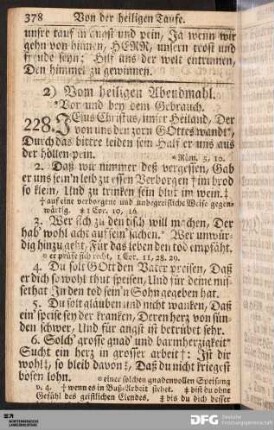 378 Von der heiligen Taufe.
unsre tauf in angst und pein, Ja wenn wir
gehn von hinnen, HERR, unsern trost und
freude seyn; Hilf uns der welt entrinnen,
Den himmel zu gewinnen.
2) Vom heiligen Abendmahl.
Vor und bey dem Gebrauch.
228. JEsus Christus, unser Heiland, Der
von uns den zorn GOttes wandt*,
Durch das bitter leiden sein Half er uns aus
der höllen-pein. * Röm. 5, 10.
2. Daß wir nimmer deß vergessen, Gab
er uns sein'n leib zu essen Verborgen † im brod
so klein, Und zu trinken sein blut im wein. ‡
† auf eine verborgene und unbegreifliche Weise gegen-
wärtig. ‡ 1 Cor. 10, 16.
3. Wer sich zu den tisch will machen, Der
hab' wohl acht auf sein' sachen.* Wer unwür-
dig hinzu geht, Für das leben den tod empfäht.
* er prüfe sich recht, 1 Cor. 11, 28. 29.
4. Du solt GOtt den Vater preisen, Daß
er dich so wohl thut speisen, Und für deine mis-
sethat In den tod sein'n Sohn gegeben hat.
5. Du solt gläuben und nicht wanken, Daß
ein' speise sey der kranken, Deren herz von sün-
den schwer, Und für angst ist betrübet sehr.
6. Solch' grosse gnad und barmherzigkeit*
Sucht ein herz in grosser arbeit †: Ist dir
wohl ‡, so bleib davon ‡, Daß du nicht kriegest
bösen lohn. * einer solchen gnadenvollen Speisung
v. 4. † wenn es in Buß-Arbeit stehet. ‡ bist du ohne
Gefühl des geistlichen Elendes. ‡ bis du dich besser
DFG